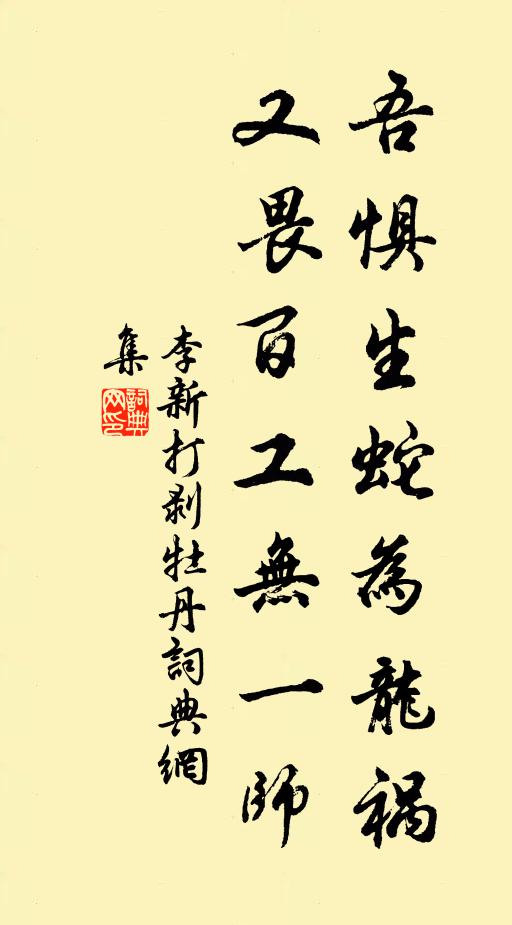 吾懼生蛇為龍禍
又畏百工無一師
李新打剥牡丹詞典網
集
詞典
网印